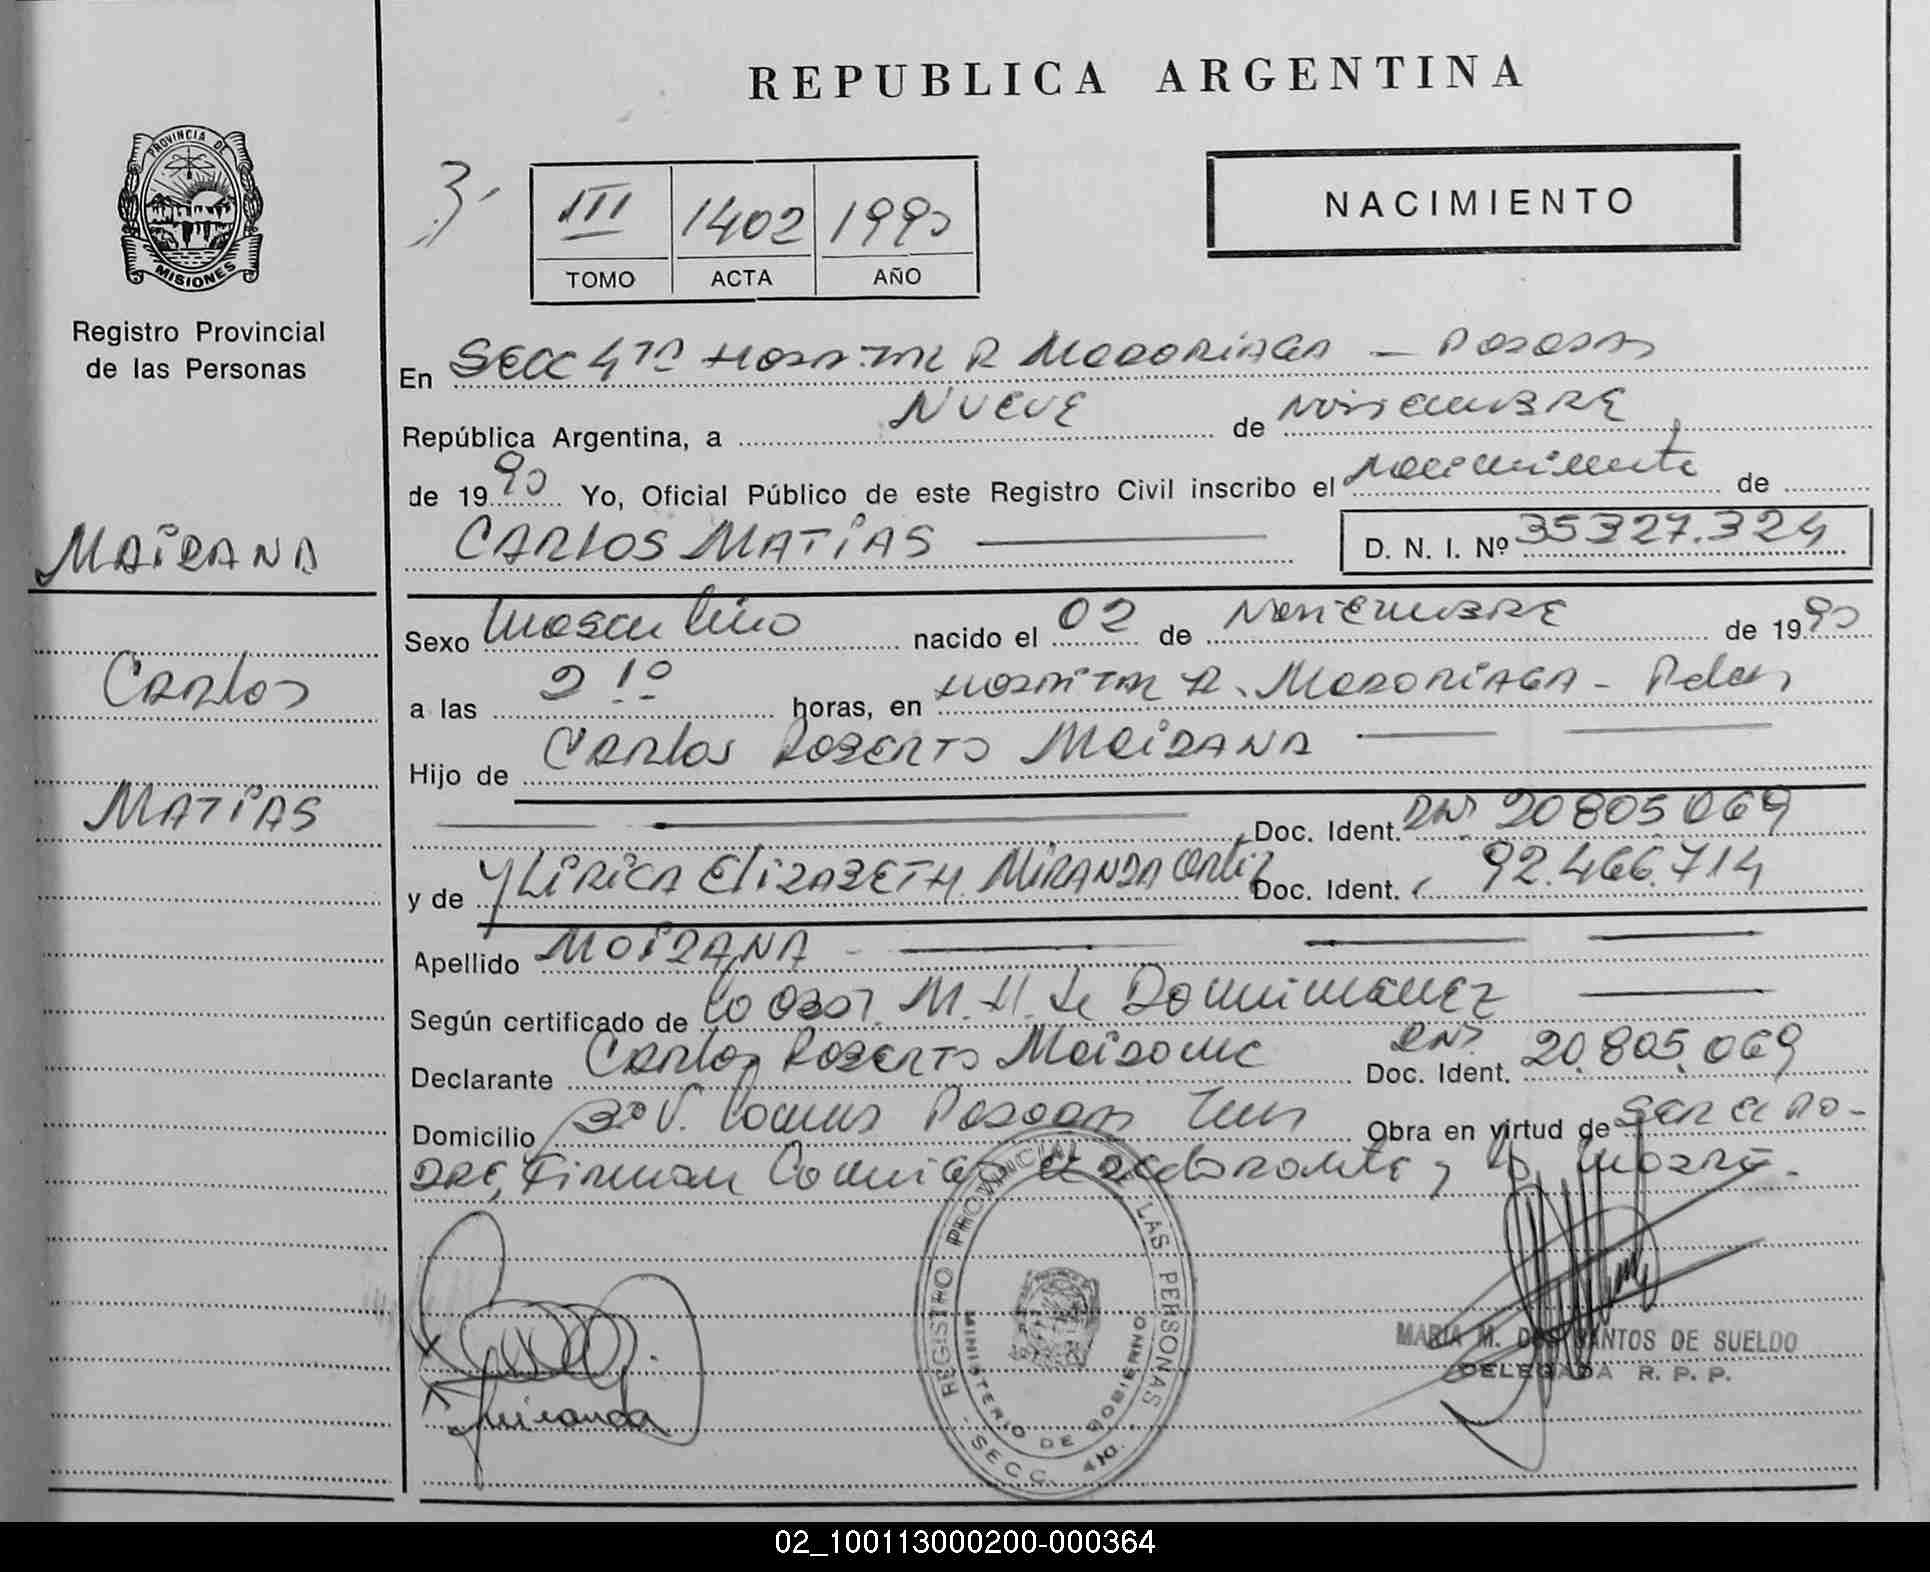 REPUBLICA ARGENTINA
PROVINCIA DE
MISIONES
Registro Provincial
de las Personas
3
III 1402 1990
TOMO ACTA AÑO
NACIMIENTO
En SECC 4ta HOSPITAL R MADARIAGA - POSADAS
República Argentina, a NUEVE de NOVIEMBRE
de 1990 Yo, Oficial Público de este Registro Civil inscribo el Nacimiento de
CARLOS MATIAS D. N. I. Nº 35327.324
MAIDANA
Carlos
MATIAS
Sexo Masculino nacido el 02 de NOVIEMBRE de 1990
a las 2 10 horas, en HOSPITAL R. MADARIAGA - Pdas
Hijo de Carlos ROBERTO MAIDANA
Doc. Ident. DNI 20805069
y de YLIRICA ELIZABETH MIRANDA Ortiz Doc. Ident. 92.466.714
Apellido MAIDANA
Según certificado de la Obst. M. H. de
Declarante Carlos ROBERTO Maidana Doc. Ident. DNI 20.805.069
Domicilio Posadas Obra en virtud de SER EL PA-
DRE, Firman Conmigo el declarante y la madre.
miranda
REGISTRO PROVINCIAL LAS PERSONAS
MINISTERIO DE GOBIERNO
SECC. 4ta.
MARIA M. DOS SANTOS DE SUELDO
DELEGADA R. P. P.
02_100113000200-000364